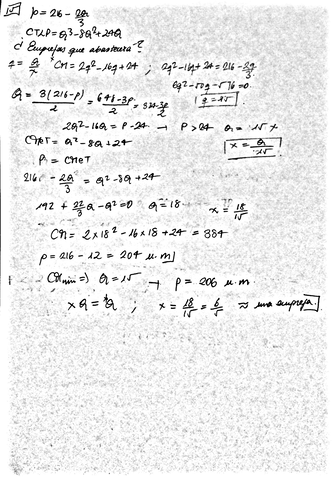 P = 216 - 2Q/3
CTLP = Q³ - 8Q² + 24Q
q = Q/x CM = 2q² - 16q + 24 ; 2q² - 16q + 24 = 216 - 2q/3
6q² - 50q - 576 = 0
Q = 3(216-P)/2 = 648-3P/2 = 324-3P/2 q = 15
2Q² - 16Q = P - 24 → P > 24 Q = 15 x
CMeT = Q² - 8Q + 24 x = Q/15
P = CMeT
216 - 2Q/3 = Q² - 8Q + 24
192 + 22/3 Q - Q² = 0 Q = 18 x = 18/15
CM = 2 x 18² - 16 x 18 + 24 = 384
P = 216 - 12 = 204 u.m
CMmin => Q = 15 → P = 206 u.m.
x Q = Q ; x = 18/15 = 6/5 ≈ uma empresa.